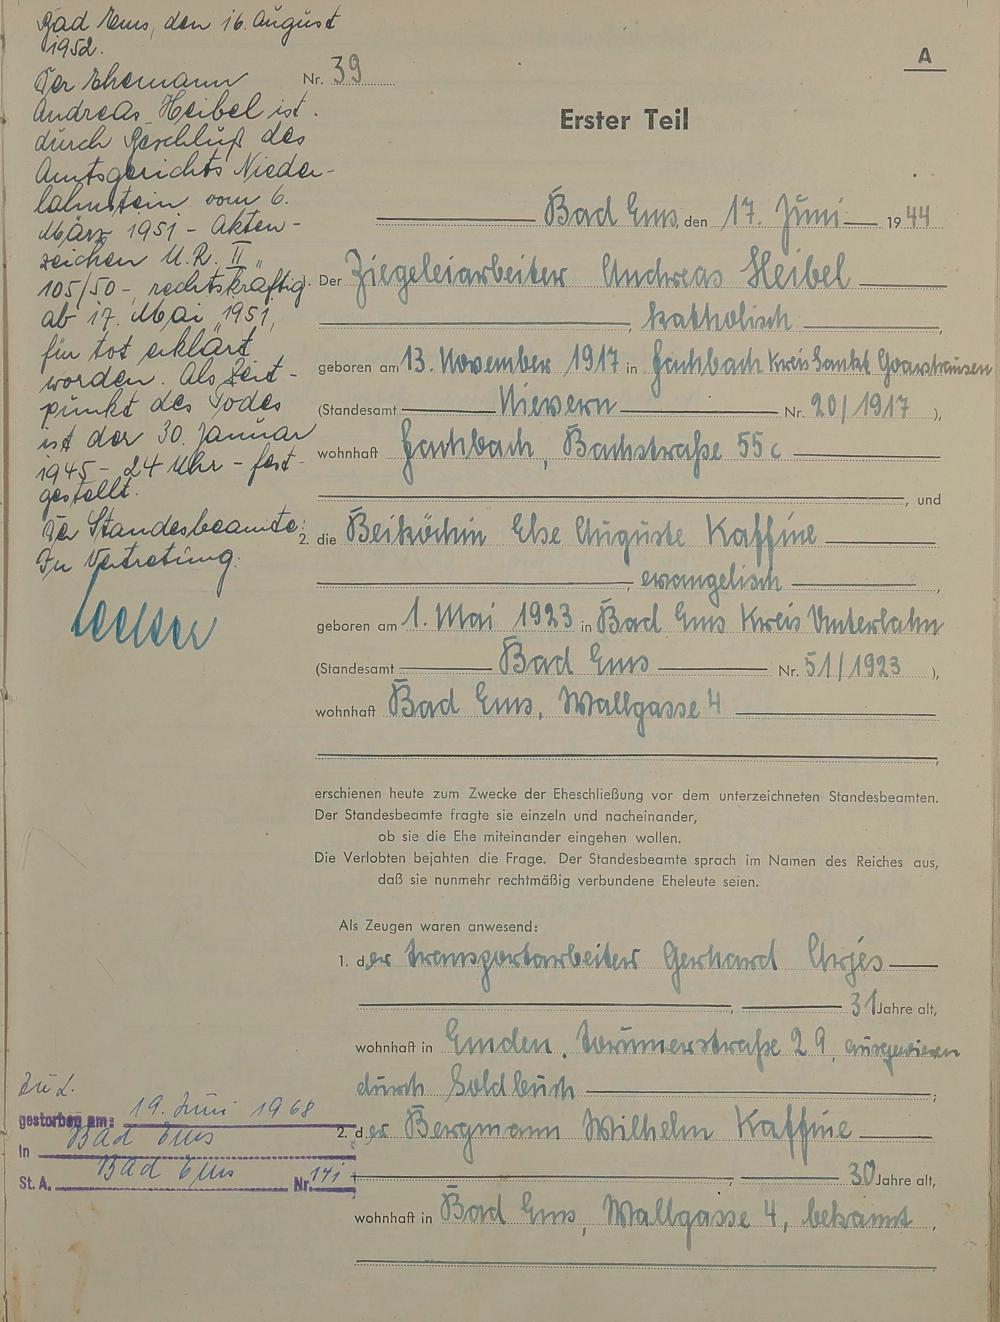 Bad Ems, den 16. August
1952.
Der Ehemann
Andreas Heibel ist
durch Beschluß des
Amtsgerichts Nieder-
lahnstein vom 6.
März 1951 - Akten-
zeichen U.R. II
105/50 -, rechtskräftig
ab 17. Mai 1951,
für tot erklärt
worden. Als Zeit-
punkt des Todes
ist der 30. Januar
1945 - 24 Uhr - fest-
gestellt.
Der Standesbeamte:
In Vertretung.
A
Nr. 39
Erster Teil
Bad Ems, den 17. Juni 1944
Der Ziegeleiarbeiter Andreas Heibel
, katholisch ,
geboren am 13. November 1917 in Fachbach Kreis Sankt Goarshausen
(Standesamt Nievern Nr. 20/1917 ),
wohnhaft Fachbach, Bachstraße 55 c
, und
2. die Beiköchin Else Auguste Kaffine
, evangelisch ,
geboren am 1. Mai 1923 in Bad Ems Kreis Unterlahn
(Standesamt Bad Ems Nr. 51/1923 ),
wohnhaft Bad Ems, Wallgasse 4
,
erschienen heute zum Zwecke der Eheschließung vor dem unterzeichneten Standesbeamten.
Der Standesbeamte fragte sie einzeln und nacheinander,
ob sie die Ehe miteinander eingehen wollen.
Die Verlobten bejahten die Frage. Der Standesbeamte sprach im Namen des Reiches aus,
daß sie nunmehr rechtmäßig verbundene Eheleute seien.
Als Zeugen waren anwesend:
1. der Transportarbeiter Gerhard Arjes
, 31 Jahre alt,
wohnhaft in Emden, 29, ausgewiesen
durch Soldbuch ;
2. der Bergmann Wilhelm Kaffine
, 30 Jahre alt,
wohnhaft in Bad Ems, Wallgasse 4, bekannt ,
zu 2.
gestorben am: 19. Juni 1968
in Bad Ems
St. A. Bad Ems Nr. 141